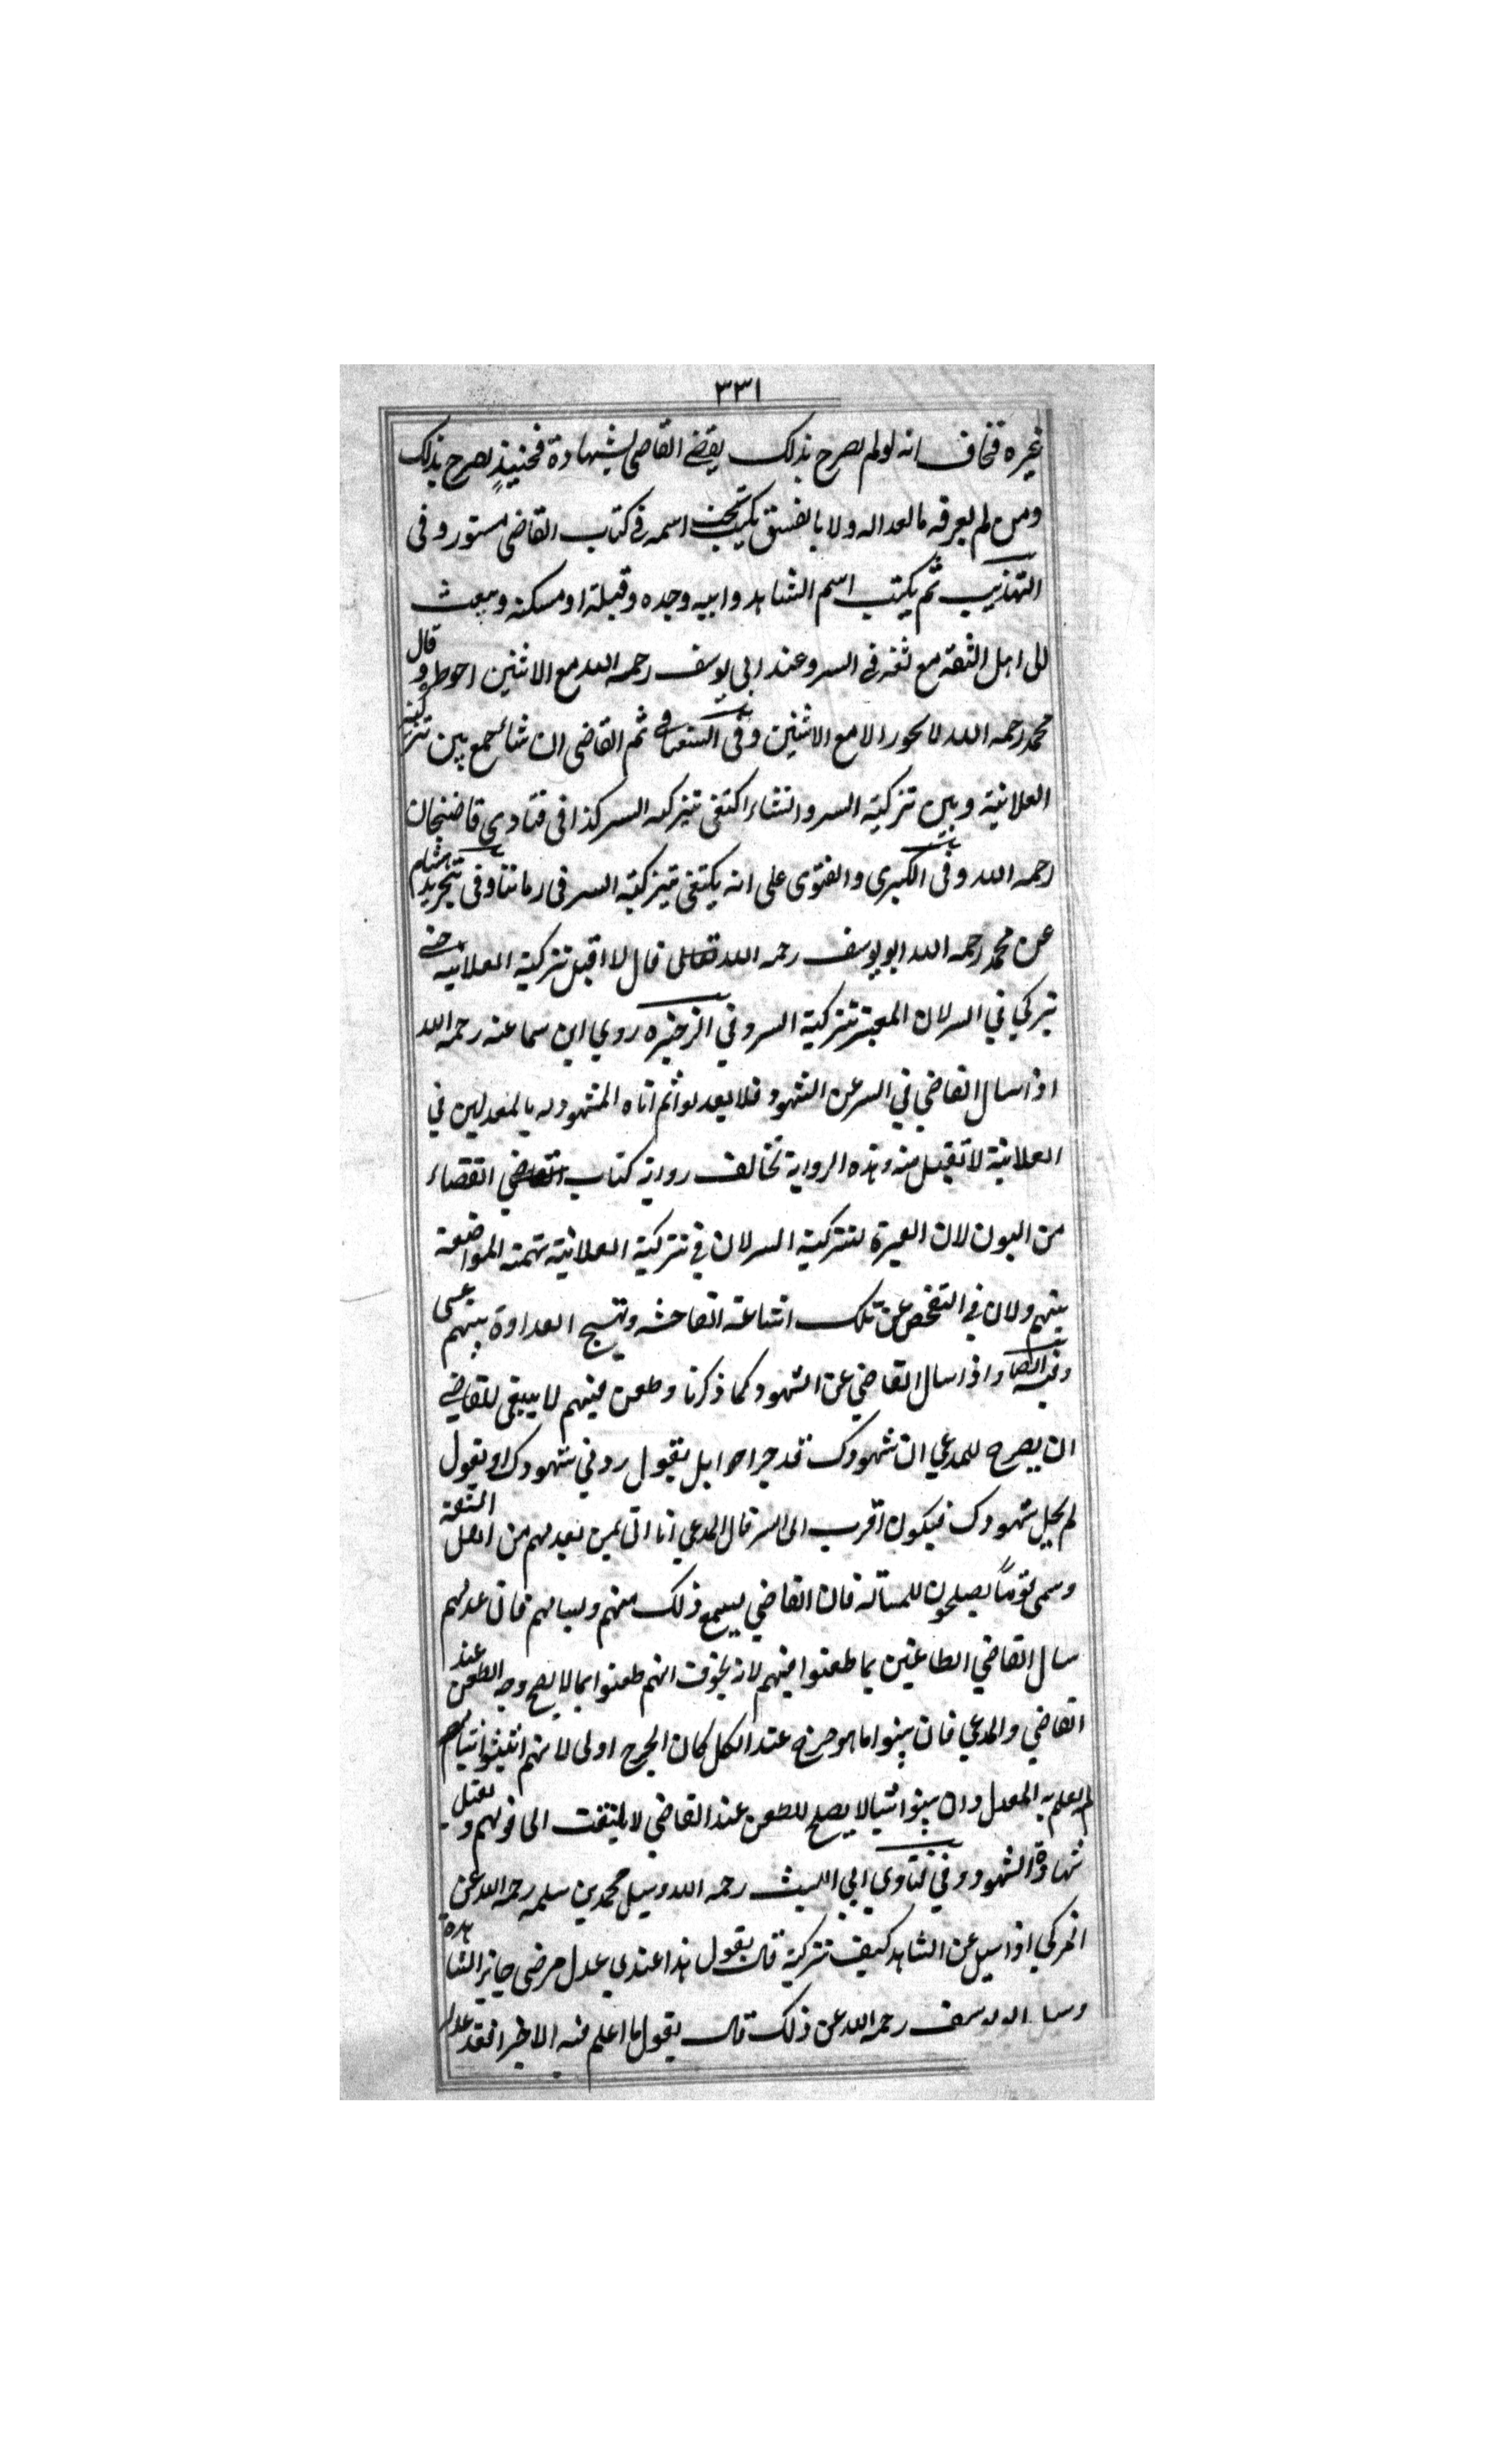 ٣٣١
غيره فخاف انه لو لم يصرح بذلك يقضے القاضى بشهادة فحينيذٍ يصرح بذلك
ومن لم يعرفه بالعداله ولا بالفسق يكتب تحت اسمه فى كتاب القاضى مستور وفى
التهذيب ثم يكتب اسم الشاهد وابيه وجده وقبيلة او مسكنه ويبعث
الى اهل الثقة مع ثقه فى السر وعند ابى يوسف رحمه الله مع الاثنين احوط وقال
محمد رحمه الله لا يجوز الا مع الاثنين وفى السغناقى ثم القاضى ان شاء جمع بين تزكية
العلانية وبين تزكية السر وانشاء اكتفى بتزكيه السر كذا فى فتاوى قاضيخان
رحمه الله وفى الكبرى والفتوى على انه يكتفى بتزكية السر فى زماننا وفى تجريد هشام
عن محمد رحمه الله ابو يوسف رحمه الله تعالى قال لا اقبل تزكية العلانية حتے
يزكي في السر لان المعتبر تزكية السر وفي الذخيره روي ابن سماعه رحمه الله
اذا سال القاضي في السر عن الشهود فلا يعدلوا ثم اتاه المشهود له بالمعدلين في
العلانية لا تقبل منه وهذه الرواية تخالف رواية كتاب القاضي القضاء
من البون لان العبرة لتزكية السر لان في تزكية العلانية تهمة المواضعة
بينهم ولان في التفحص عن تلك اشاعة الفاحشه وتهيج العداوة بينهم عسى
وفيه ايضا واذا سال القاضي عن الشهود كما ذكرنا وطعن فيهم لا ينبغى للقاضے
ان يصرح للمدعي ان شهودك قد جرحوا بل يقول زدني شهودك او يقول
لم يحل شهودك فيكون اقرب الى السر قال المدعي انا اتى بمن يعدلهم من اهل الثقة
وسمى قوماً يصلحون للمسالة فان القاضي يسمع ذلك منهم ويسالهم فان عدلهم
سال القاضي الطاعنين بما طعنوا فيهم لانه يجوز انهم طعنوا بما لا يصح وجه الطعن عند
القاضي والمدعي فان بينوا ما هو جرح عند الكل كان الجرح اولى لانهم اثبتوا شيا
لم يعلم به المعدل وان بينوا شيا لا يصلح للطعن عند القاضي لا يلتفت الى قولهم ويقبل
شهادة الشهود وفي فتاوي ابي الليث رحمه الله وسيل محمد بن سلمه رحمه الله عن
المزكي اذا سيل عن الشاهد كيف تزكيه قال يقول هذا عندي عدل مرضى جايز الشهادة
وسال ابو يوسف رحمه الله عن ذلك قال يقول ما اعلم فيه الا خيرا فقد عدله